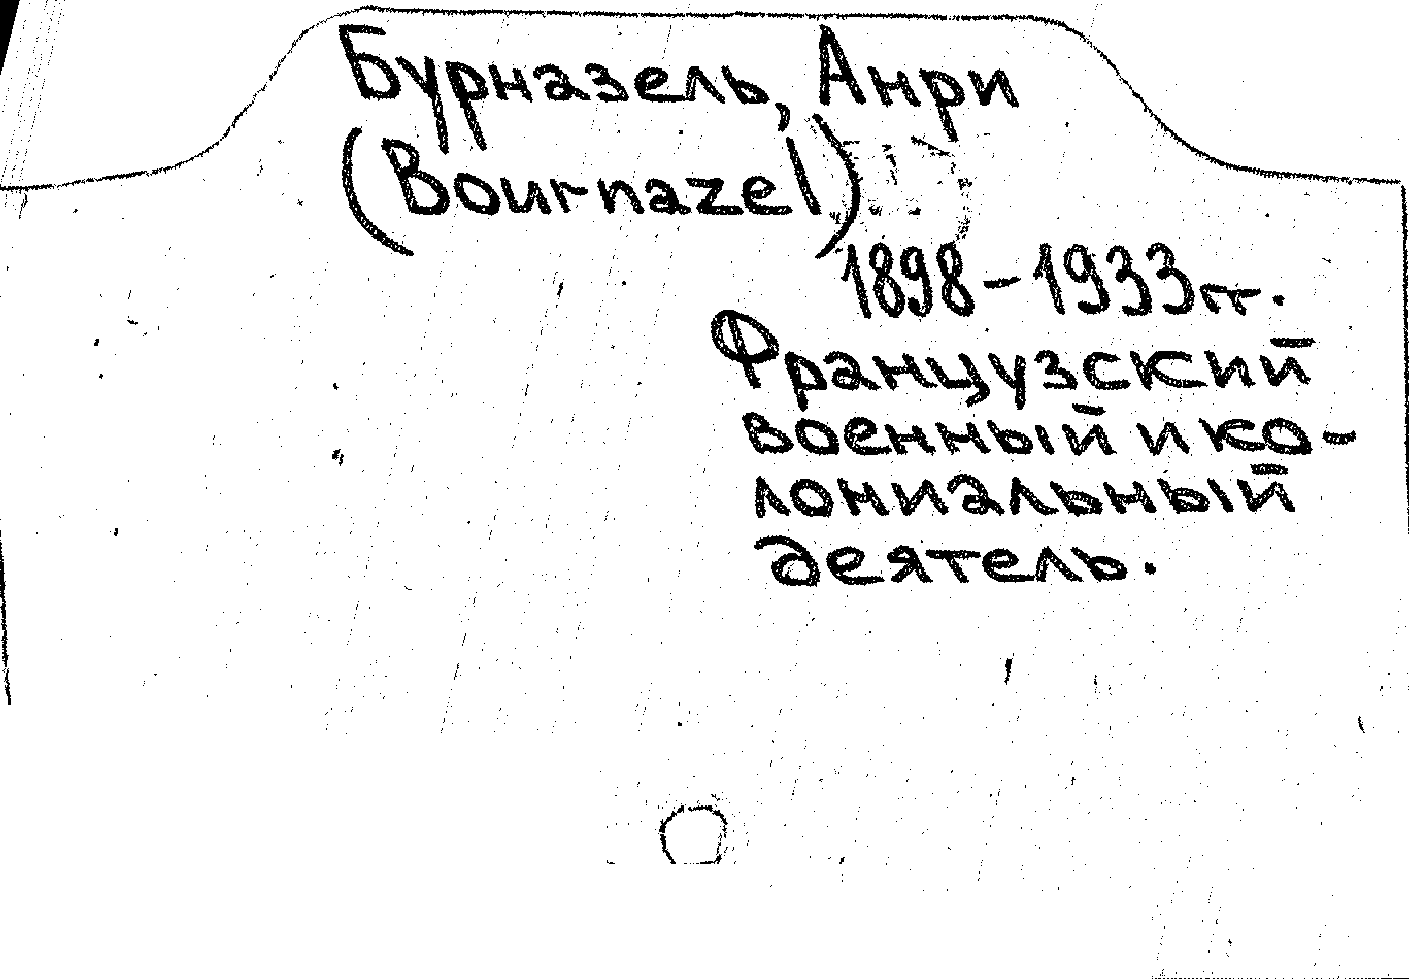 Бурназель, Анри
(Bournazel)
1898-1933гг.
Французский
военный и ко-
лониальный
деятель.